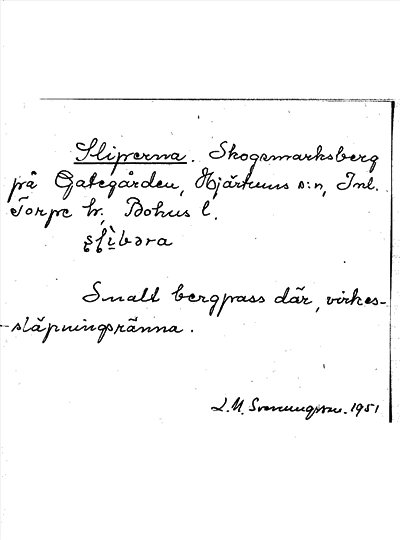 Sliperna. Skogsmarksberg
på Gategården, Hjärtums s:n, Inl.
Torpe hr, Bohus l.
Smalt bergpass där, virkes-
släpningsränna.
L.M. Svenungsson. 1951